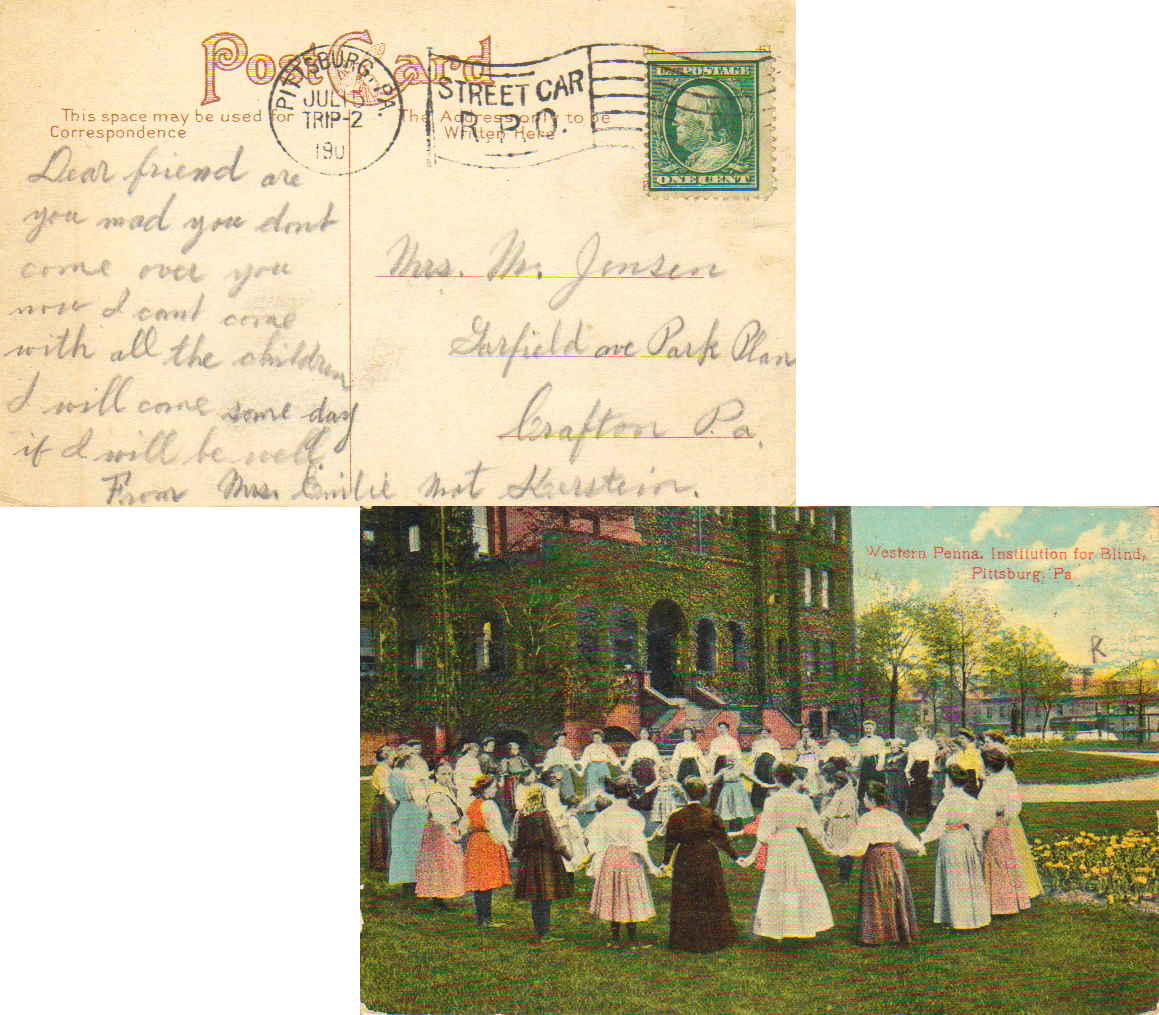 Post Card
This space may be used for
Correspondence
The Address only to be
Written Here
PITTSBURG, PA.
JUL 15
TRIP-2
190
STREET CAR
R.P.O.
U.S. POSTAGE
ONE CENT
Dear friend are
you mad you dont
come over you
now I cant come
with all the children
I will come some day
if I will be well
From Mrs. Emilie Mat Kerstein.
Mrs. M. Jensen
Garfield ave Park Plan
Crafton Pa.
Western Penna. Institution for Blind,
Pittsburg, Pa
R